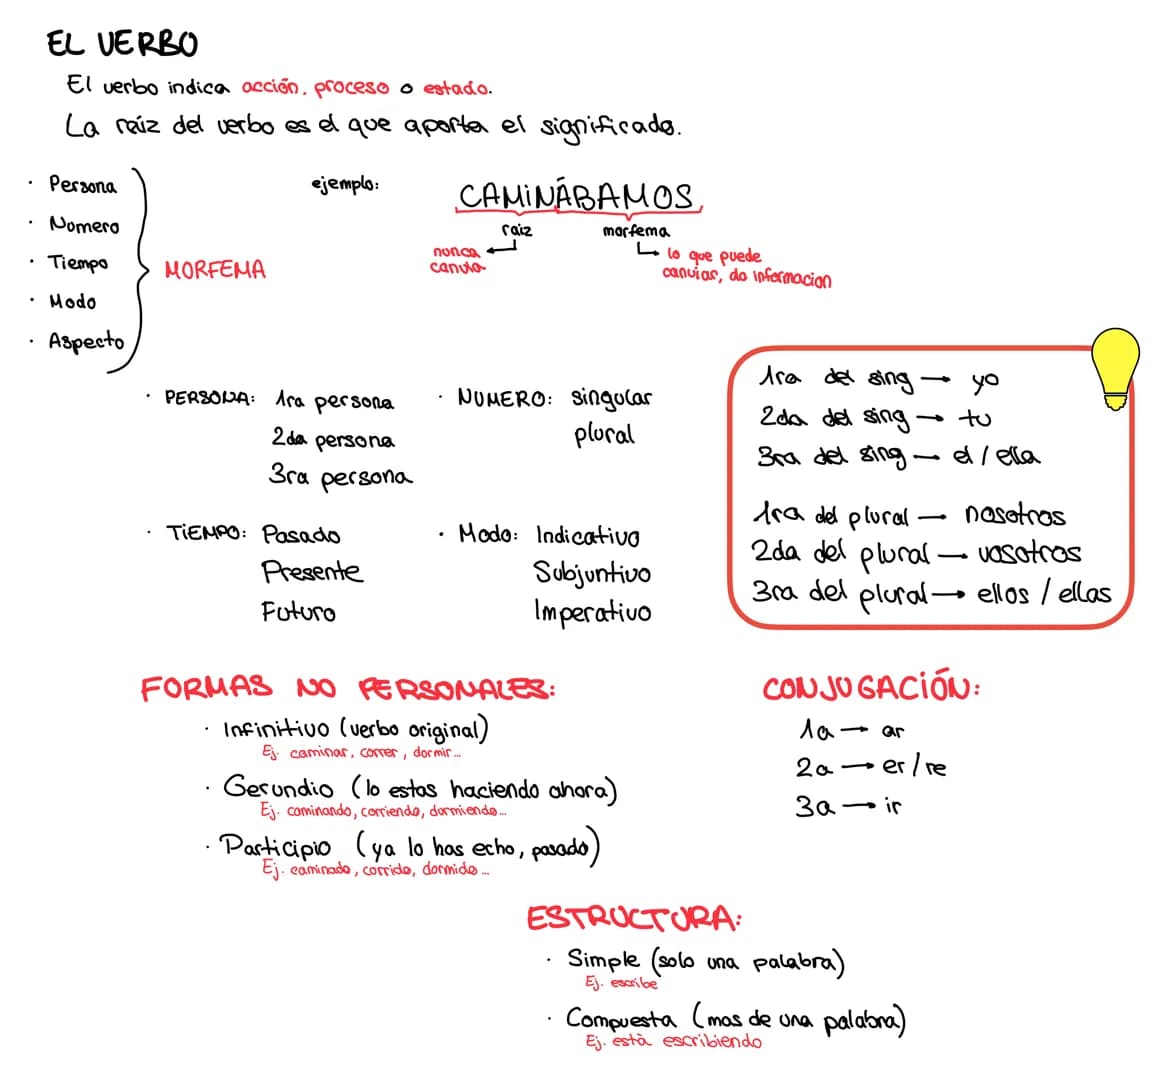 EL VERBO
El verbo indica acción, proceso o estado.
La raíz del verbo es el que aporta el significado.
· Persona
· Numero
· Tiempo
· Modo
· Aspecto
MORFEMA
ejemplo:
CAMINÁBAMOS
raiz
morfema
nunca
canvia
lo que puede
canviar, da informacion
· PERSONA: 1ra persona
2da persona
3ra persona
· NUMERO: singular
plural
1ra del sing → yo
2da del sing → tu
3ra del sing → el / ella
1ra del plural → nosotros
2da del plural → vosotros
3ra del plural → ellos / ellas
· TIEMPO: Pasado
Presente
Futuro
· Modo: Indicativo
Subjuntivo
Imperativo
FORMAS NO PERSONALES:
· Infinitivo (verbo original)
Ej. caminar, correr, dormir...
· Gerundio (lo estas haciendo ahora)
Ej. caminando, corriendo, durmiendo...
· Participio (ya lo has echo, pasado)
Ej. caminado, corrido, dormido...
CONJUGACIÓN:
1a → ar
2a → er/re
3a → ir
ESTRUCTURA:
· Simple (solo una palabra)
Ej. escribe
· Compuesta (mas de una palabra)
Ej. està escribiendo